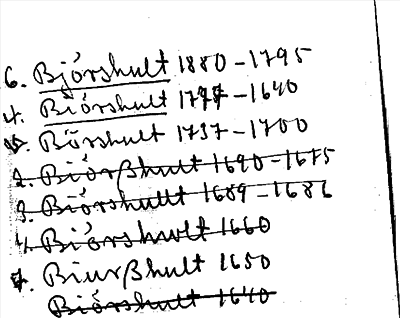 6. Bjórshult 1880-1795
4. Biórshult 1797-1640
5. Bórshult 1737-1700
2. Biórßhult 1690-1675
3. Biórshullt 1689-1686
4. Biórshwlt 1660
7. Biurßhult 1650
Biórshult 1640